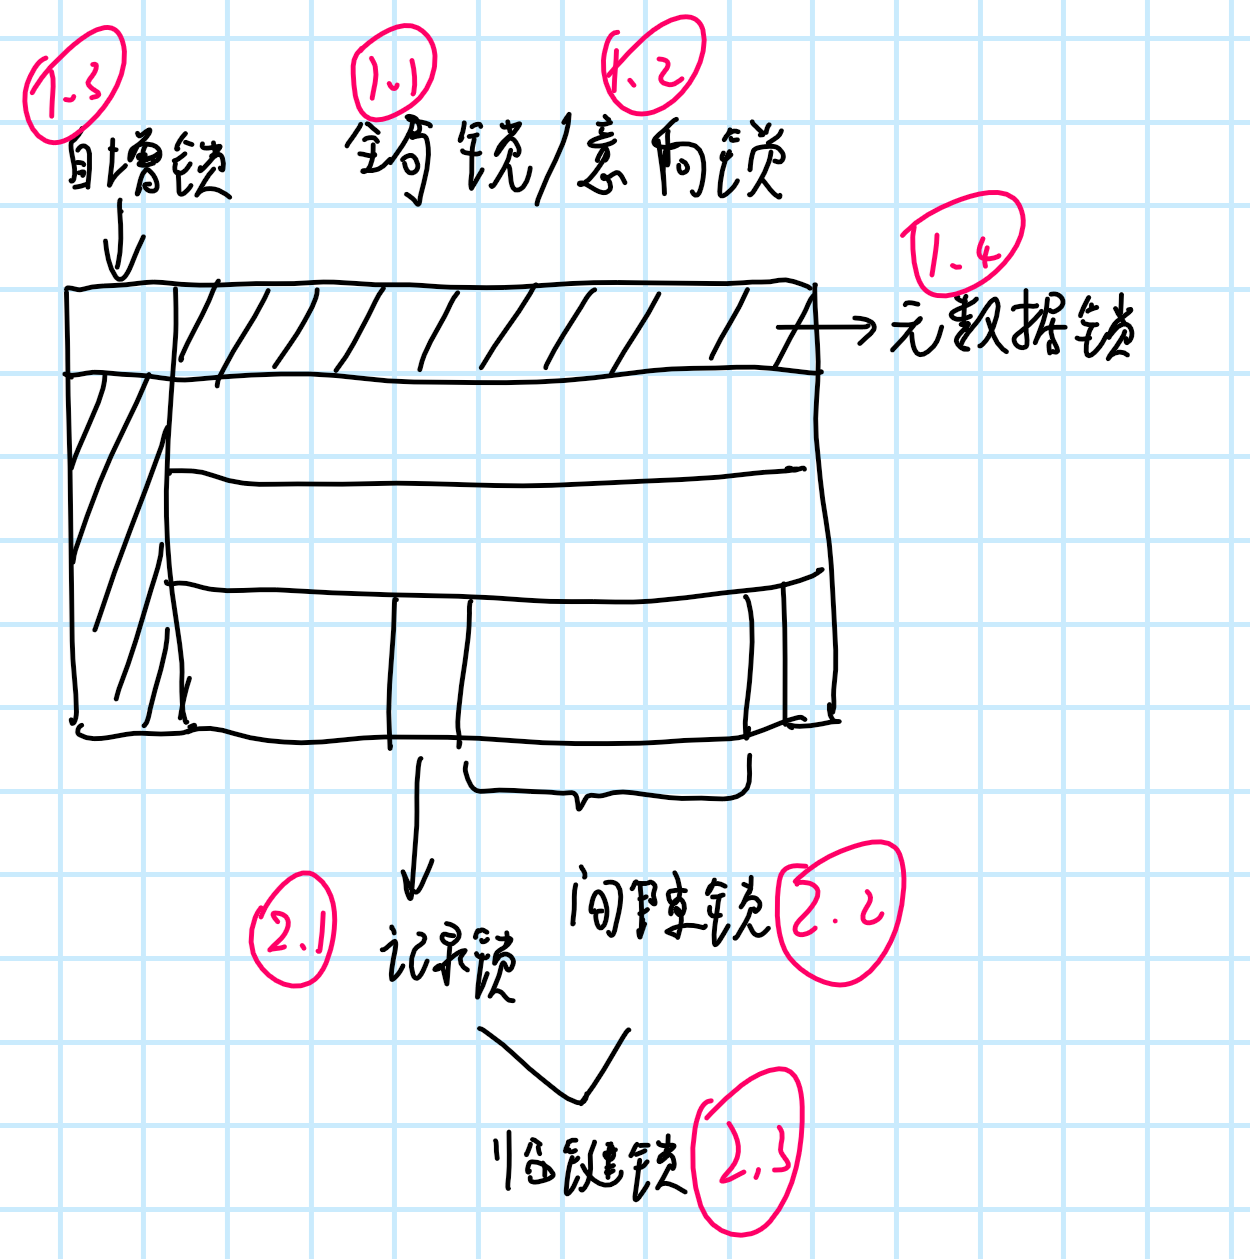 1.3
1.1
1.2
自增锁
全局锁/意向锁
1.4
元数据锁
2.1
记录锁
间隙锁
2.2
临键锁
2.3